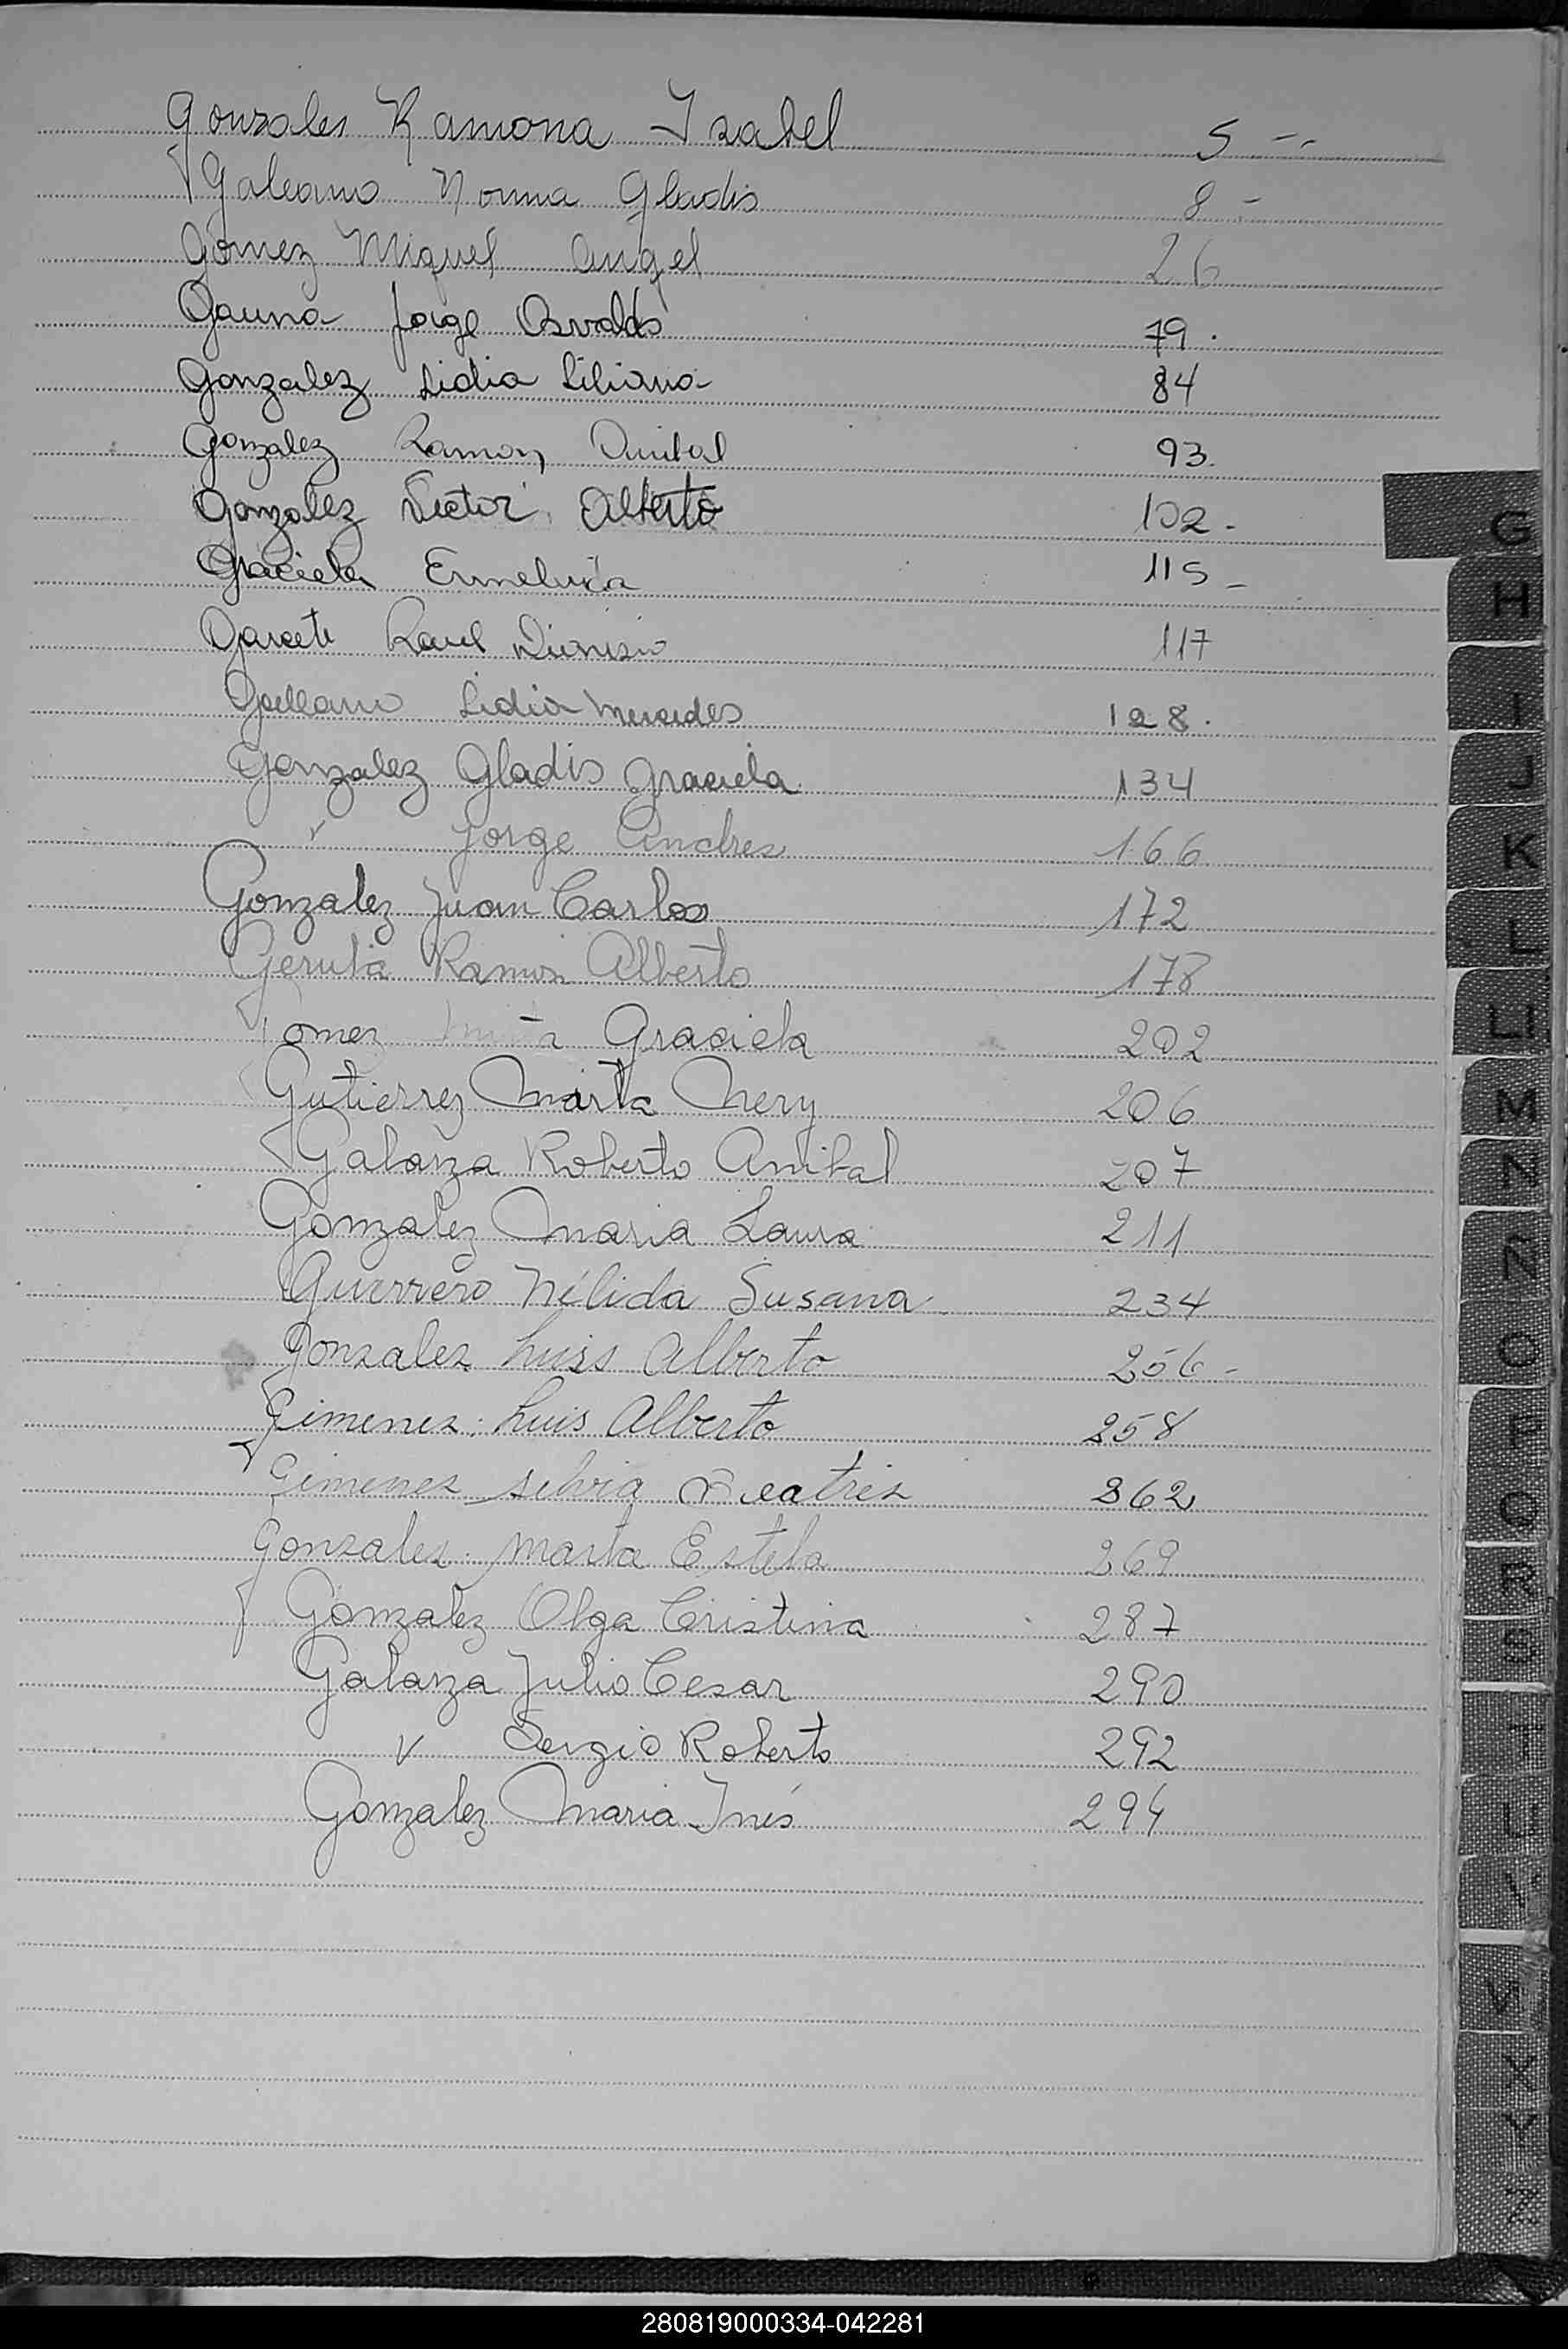 Gonzales Ramona Isabel 5 --
Galeano Norma Gladis 8 -
Gomez Miguel Angel 26
Gauna Jorge Osvaldo 79.
Gonzalez Lidia Liliana 84
Gonzalez Ramon Anibal 93.
Gonzalez Hector Alberto 102-
Graciela Ermelinda 115-
Garcete Raul Dionisio 117
Lidia Mercedes 128.
Gonzalez Gladis Graciela 134
v Jorge Andres 166
Gonzalez Juan Carlos 172
Ramon Alberto 178
Gomez Graciela 202
Gutierrez Marta Nery 206
Galarza Roberto Anibal 207
Gonzalez Maria Laura 211
Guerrero Nélida Susana 234
Gonzalez Luis Alberto 256-
Gimenez. Luis Alberto 258
Gimenez Silvia Beatriz 262
Gonzalez. Marta Estela 269
Gonzalez Olga Cristina 287
Galarza Julio Cesar 290
v Sergio Roberto 292
Gonzalez Maria Inés 294
G
H
I
J
K
L
Ll
M
N
Ñ
O
P
Q
R
S
T
U
V
W
X
Y
Z
280819000334-042281